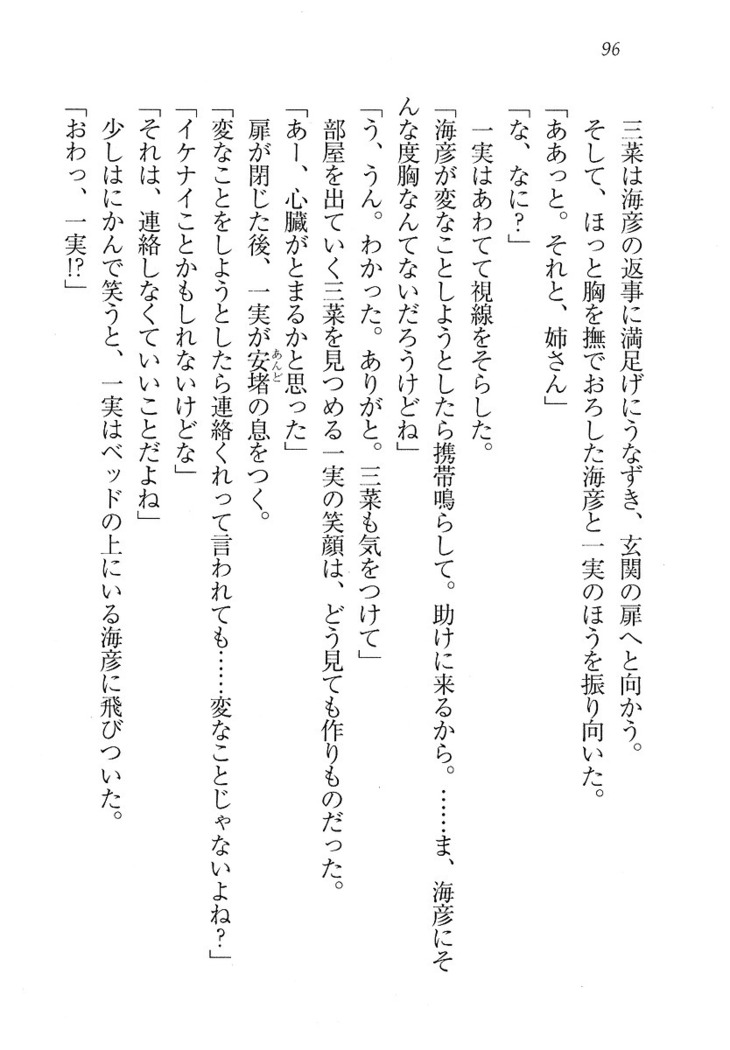 96
三菜は海彦の返事に満足げにうなずき、玄関の扉へと向かう。
そして、ほっと胸を撫でおろした海彦と一実のほうを振り向いた。
「ああっと。それと、姉さん」
「な、なに？」
一実はあわてて視線をそらした。
「海彦が変なことしようとしたら携帯鳴らして。助けに来るから。……ま、海彦にそ
んな度胸なんてないだろうけどね」
「う、うん。わかった。ありがと。三菜も気をつけて」
部屋を出ていく三菜を見つめる一実の笑顔は、どう見ても作りものだった。
「あー、心臓がとまるかと思った」
扉が閉じた後、一実が安堵の息をつく。
あんど
「変なことをしようとしたら連絡くれって言われても……変なことじゃないよね？」
「イケナイことかもしれないけどな」
「それは、連絡しなくていいことだよね」
少しはにかんで笑うと、一実はベッドの上にいる海彦に飛びついた。
「おわっ、一実!?」